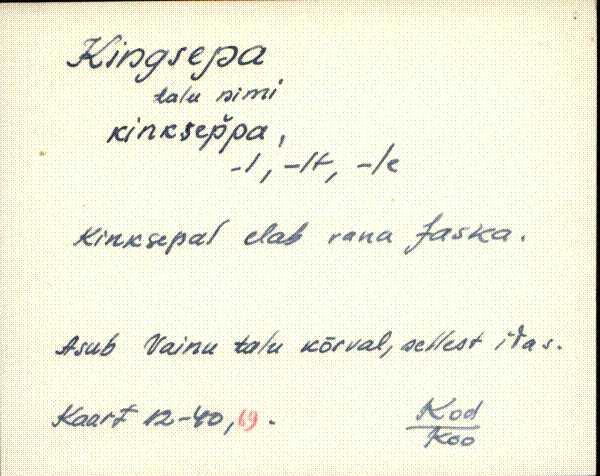 Kingsepa
talu nimi
kinksep̌pa,
-l, -lt, -le
Kinksepal elab vana Jaska.
Asub Vainu talu kõrval, sellest idas.
Kaart 12-40, 69.
Kod
Koo